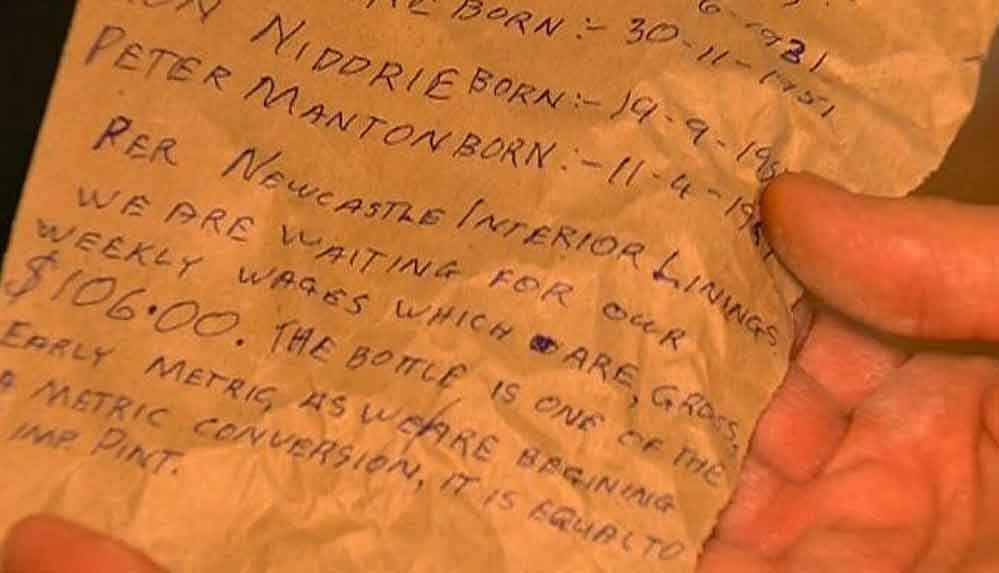 BORN:- 30-11-1951
NIDDRIE BORN:- 19-9-19
PETER MANTON BORN:- 11-4-19
RER NEWCASTLE INTERIOR LININGS.
WE ARE WAITING FOR OUR
WEEKLY WAGES WHICH ARE, GROSS,
$106.00. THE BOTTLE IS ONE OF THE
EARLY METRIC, AS WE ARE BEGINING
METRIC CONVERSION, IT IS EQUAL TO
IMP PINT.